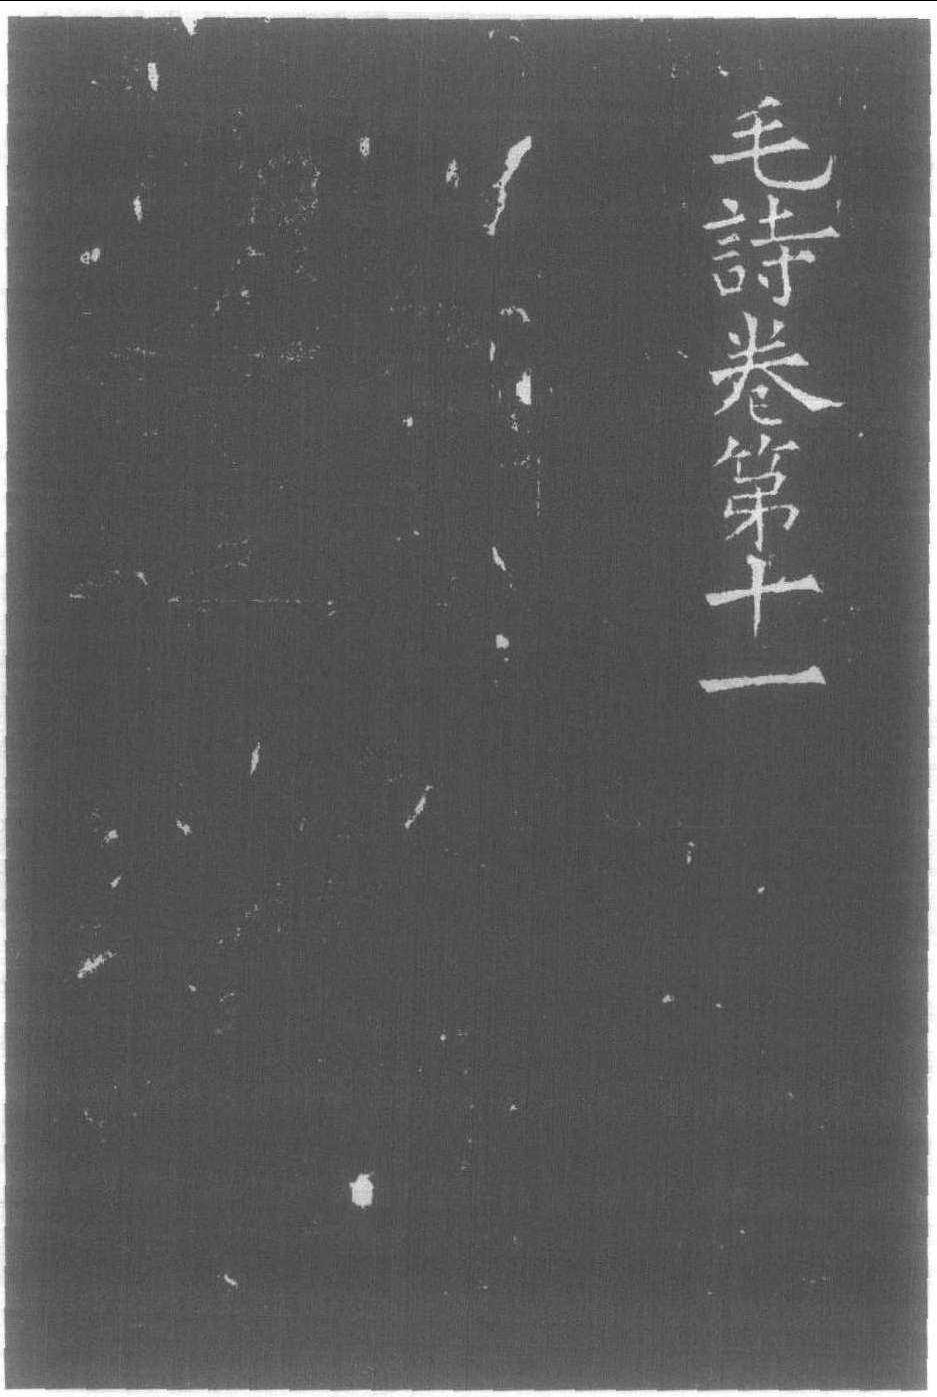 毛詩卷第十一